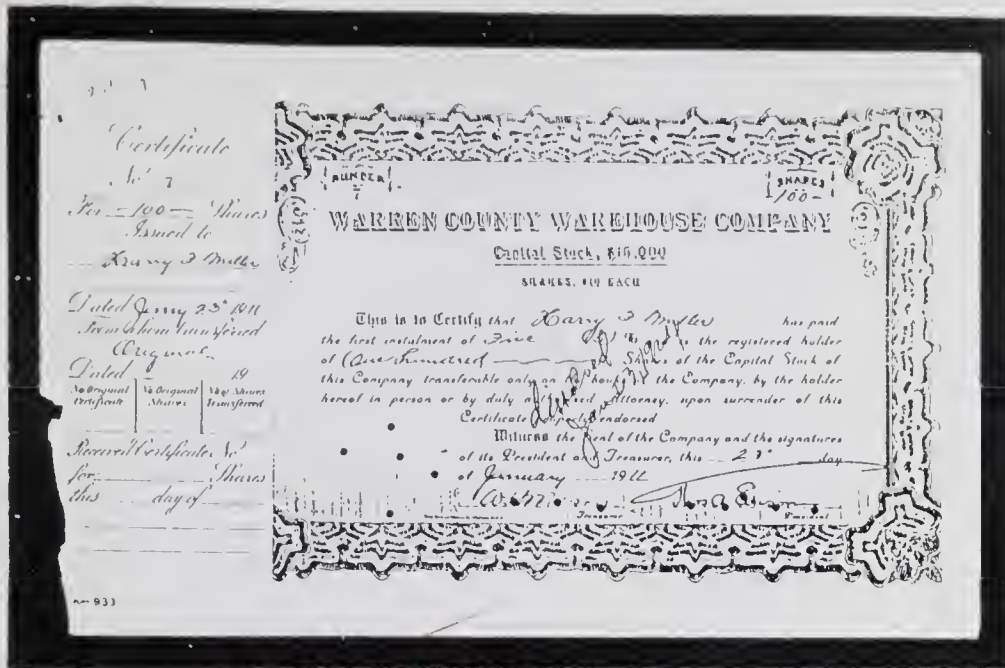 Certificate
No. 7
For 100 Shares
Issued to
Harry F Miller
Dated Jany 23" 1911
From whom transferred
Original
Dated 19
No Original Certificate No Original Shares No of Shares Transferred
Received Certificate No
for Shares
this day of
NUMBER
7
SHARES
100-
WARREN COUNTY WAREHOUSE COMPANY
Capital Stock, $15,000
SHARES, $10 EACH
This is to Certify that Harry F Miller has paid
the first instalment of Five is the registered holder
of One Hundred Shares of the Capital Stock of
this Company transferable only on the books of the Company, by the holder
hereof in person or by duly authorized attorney, upon surrender of this
Certificate properly endorsed
Witness the Seal of the Company and the signatures
of its President and Treasurer, this 23" day
of January 1911
Treasurer President
933